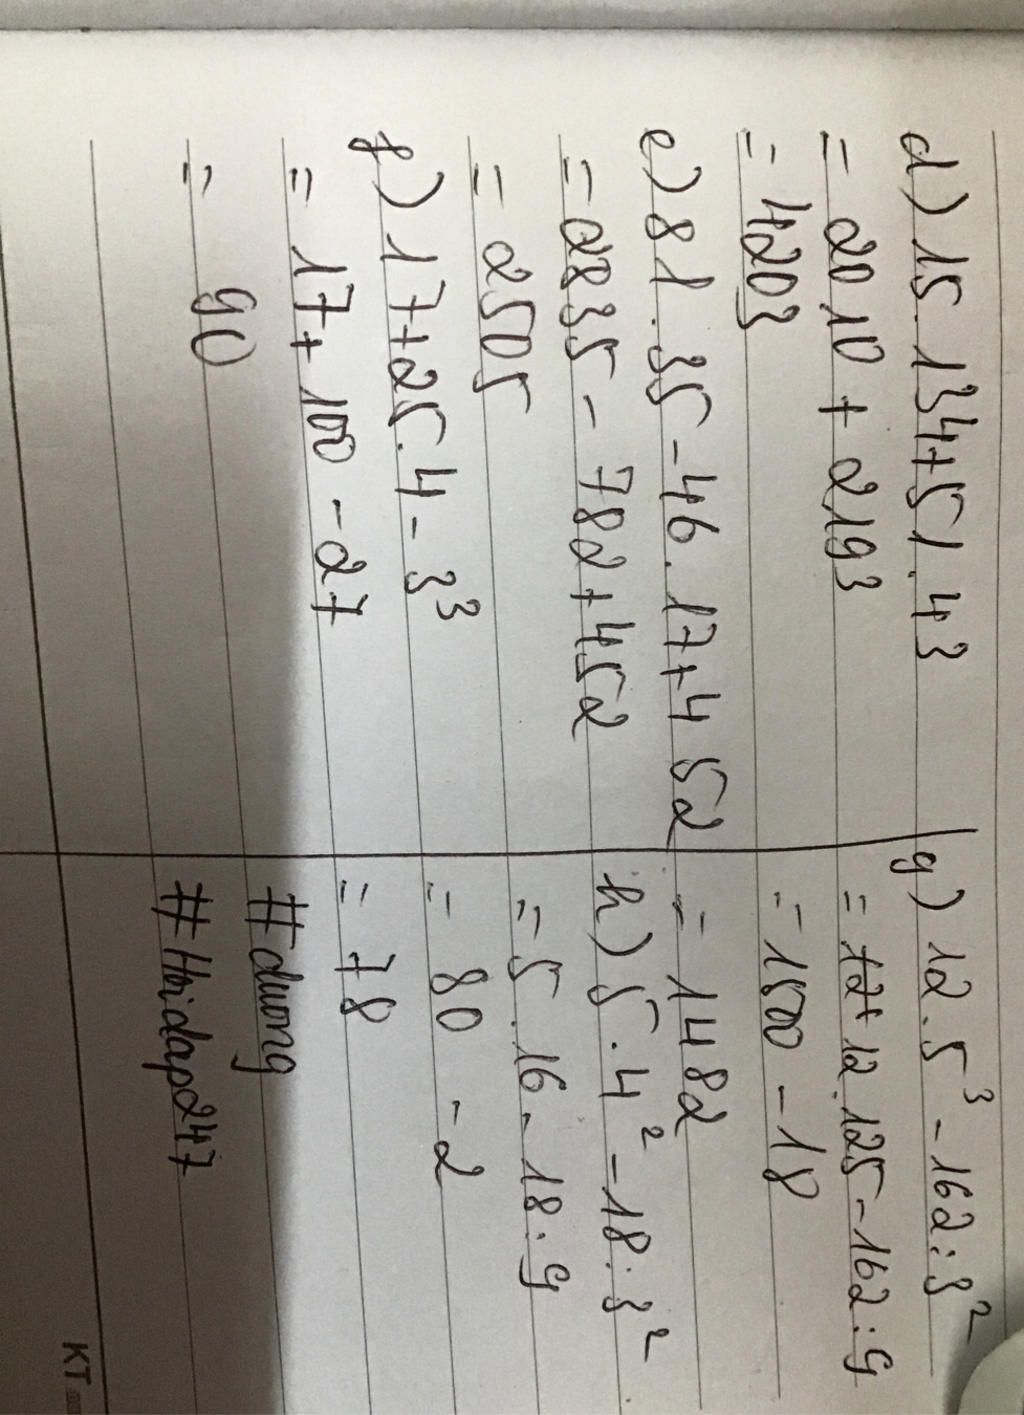 d) 15.134+51.43
= 2010 + 2193
= 4203
e) 81.35-46.17+452
= 2835 - 782+452
= 2505
f) 17+25.4-3³
= 17+ 100 - 27
= 90
g) 12.5³-162:3²
= 12.125-162:9
= 1500 - 18
= 1482
h) 5.4²-18:3²
= 5.16-18:9
= 80 - 2
= 78
#duong
#Hoidap247
KT